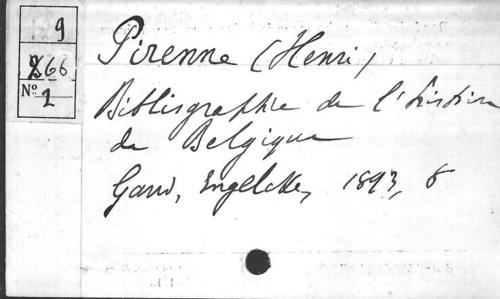 9
266
Nº
2
Pirenne (Henri)
Bibliographie de l'histoire
de Belgique
Gand, Engelcke, 1893, 8